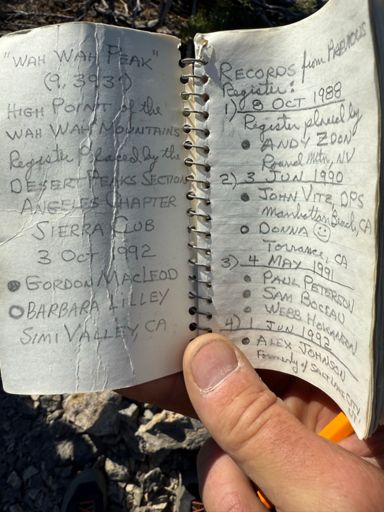 "WAH WAH PEAK"
(9,393')
HIGH POINT of the
WAH WAH MOUNTAINS
Register Placed by the
DESERT PEAKS SECTION
ANGELES CHAPTER
SIERRA CLUB
3 OCT 1992
GORDON MACLEOD
BARBARA LILLEY
SIMI VALLEY, CA
RECORDS from PREVIOUS
Register:
1) 8 OCT 1988
Register placed by
ANDY ZDON
Round Mtn, NV
2) 3 JUN 1990
JOHN VITZ, DPS
Manhattan Beach, CA
DONNA ☺
Torrance, CA
3) 4 MAY 1991
PAUL PETERSON
SAM
WEBB
4) 1 JUN 1992
ALEX JOHNSON
Formerly of Salt Lake City